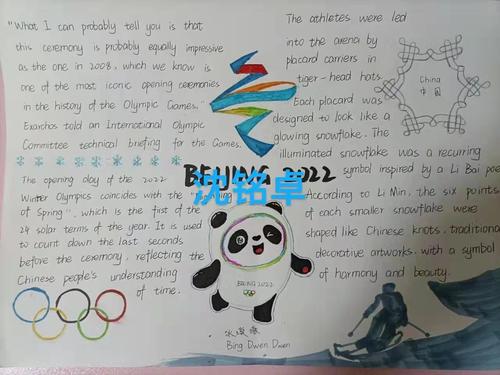 "What I can probably tell you is that
this ceremony is probably equally impressive
as the one in 2008, which we know is
one of the most iconic opening ceremonies
in the history of the Olympic Games."
Exarchos told an International Olympic
Committee technical briefing for the Games.
The opening day of the 2022
Winter Olympics coincides with the "Beginning
of Spring", which is the first of the
24 solar terms of the year. It is used
to count down the last seconds
before the ceremony, reflecting the
Chinese people's understanding
of time.
BEIJING 2022
沈铭卓
BEIJING 2022
冰墩墩
Bing Dwen Dwen
The athletes were led
into the arena by
placard carriers in
tiger-head hats.
Each placard was
designed to look like a
glowing snowflake. The
illuminated snowflake was a recurring
symbol inspired by a Li Bai poe
According to Li Min, the six points
of each smaller snowflake were
shaped like Chinese knots, traditional
decorative artworks, with a symbol
of harmony and beauty.
China
中国